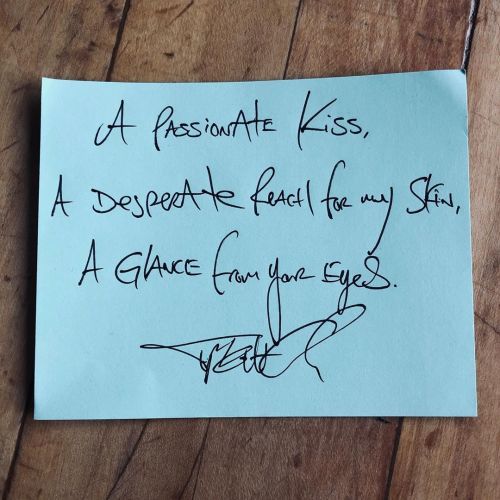 A Passionate Kiss,
A Desperate Reach for my Skin,
A Glance from your Eyes.